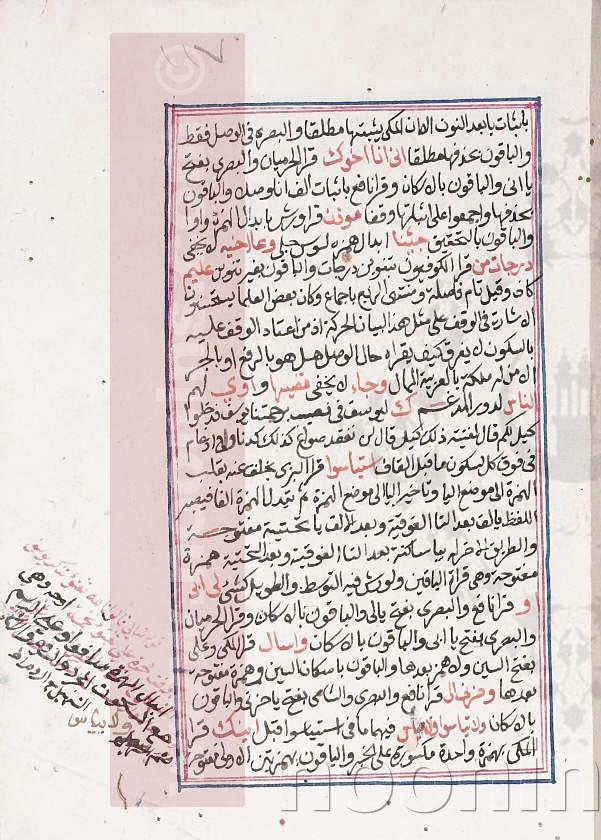 باثبات يا بعد النون الا ان المكي يثبتها مطلقا والبصري في الوصل فقط
والباقون بحذفها مطلقا اني انا اخوك قرا الحرميان والبصري بفتح
يا اني والباقون بالاسكان وقرا نافع باثبات الف انا وصلا والباقون
بحذفها واجمعوا على اثباتها وقفا موذن قرا ورش بابدال الهمزة واوا
والباقون بالتحقيق جئنا ابدال همزه لسوسي جلي وعا اخيه لا يخفى
درجات من قرا الكوفيون بتنوين درجات والباقون بغير تنوين عليم
كاف وقيل تام فاصلة ومنتهى الربع باجماع وكان بعض العلما يستحسنون
الاشارة في الوقف على مثل هذا لبيان الحركة اذ من اعتاد الوقف عليه
بالسكون لا يعرف كيف يقراه حال الوصل هل هو بالرفع او بالجر
الا من له ملكة بالعربية الممال وجاء لا يخفى قضيها واوي لهم
الناس لدور المدغم ك ليوسف في نصيب برحمتنا يوسف فدخلوا
كيل لكم قال لفتيته ذلك كيل قال لن نفقد صواع كذلك كدنا ولا ادغام
في فوق كل لسكون ما قبل القاف استياسوا قرا البزي بخلف عنه بقلب
الهمزة الى موضع اليا وتاخير اليا الى موضع الهمزة ثم تبدل الهمزة الفا فيصير
اللفظ بالف بعد التا الفوقية وبعد الالف يا تحتية مفتوحة
والطريق الاخر له بيا ساكنة بعد التا الفوقية وبعد التحتية همزة
مفتوحة وهي قراة الباقين ولورش فيه التوسط والطويل كشي لي ابي
او قرا نافع والبصري بفتح يا لي والباقون بالاسكان وقرا الحرميان
والبصري بفتح يا ابي والباقون بالاسكان واسال قرا المكي وعلي
بفتح السين ولا همز بعدها والباقون باسكان السين وهمزة مفتوحة
بعدها وحزني قرا نافع والبصري والشامي بفتح يا حزني والباقون
بالاسكان ولا تياسوا ولا يياس فيهما ما في استياسوا قبل ائنك قرا
المكي بهمزة واحدة مكسورة على الخبر والباقون بهمزتين الاولى مفتوحة
noonin